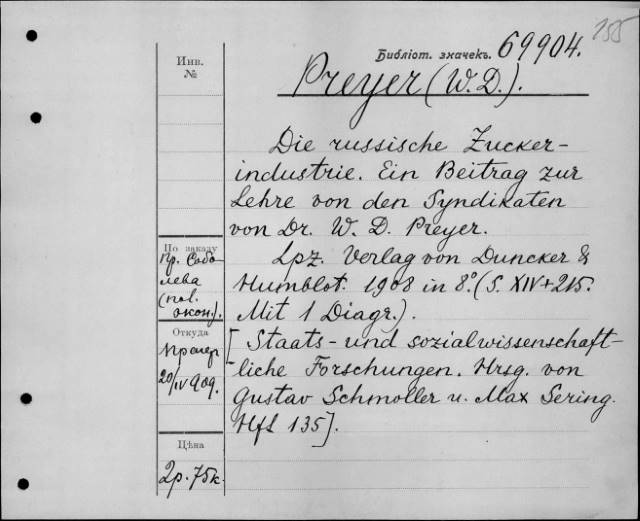 155
Библіот. значекъ. 69904.
Инв.
№
Preyer (W. D.).
Die russische Zucker-
industrie. Ein Beitrag zur
Lehre von den Syndikaten
von Dr. W. D. Preyer.
По заказу
Пр. Собо-
лева
Lpz. Verlag von Duncker &
Humblot. 1908 in 8.° (S. XIV + 215.
Mit 1 Diagr.).
Откуда
20/IV 909.
[Staats- und sozialwissenschaft-
liche Forschungen. Hrsg. von
Gustav Schmoller u. Max Sering.
Hft 135].
Цѣна
2р. 75к.